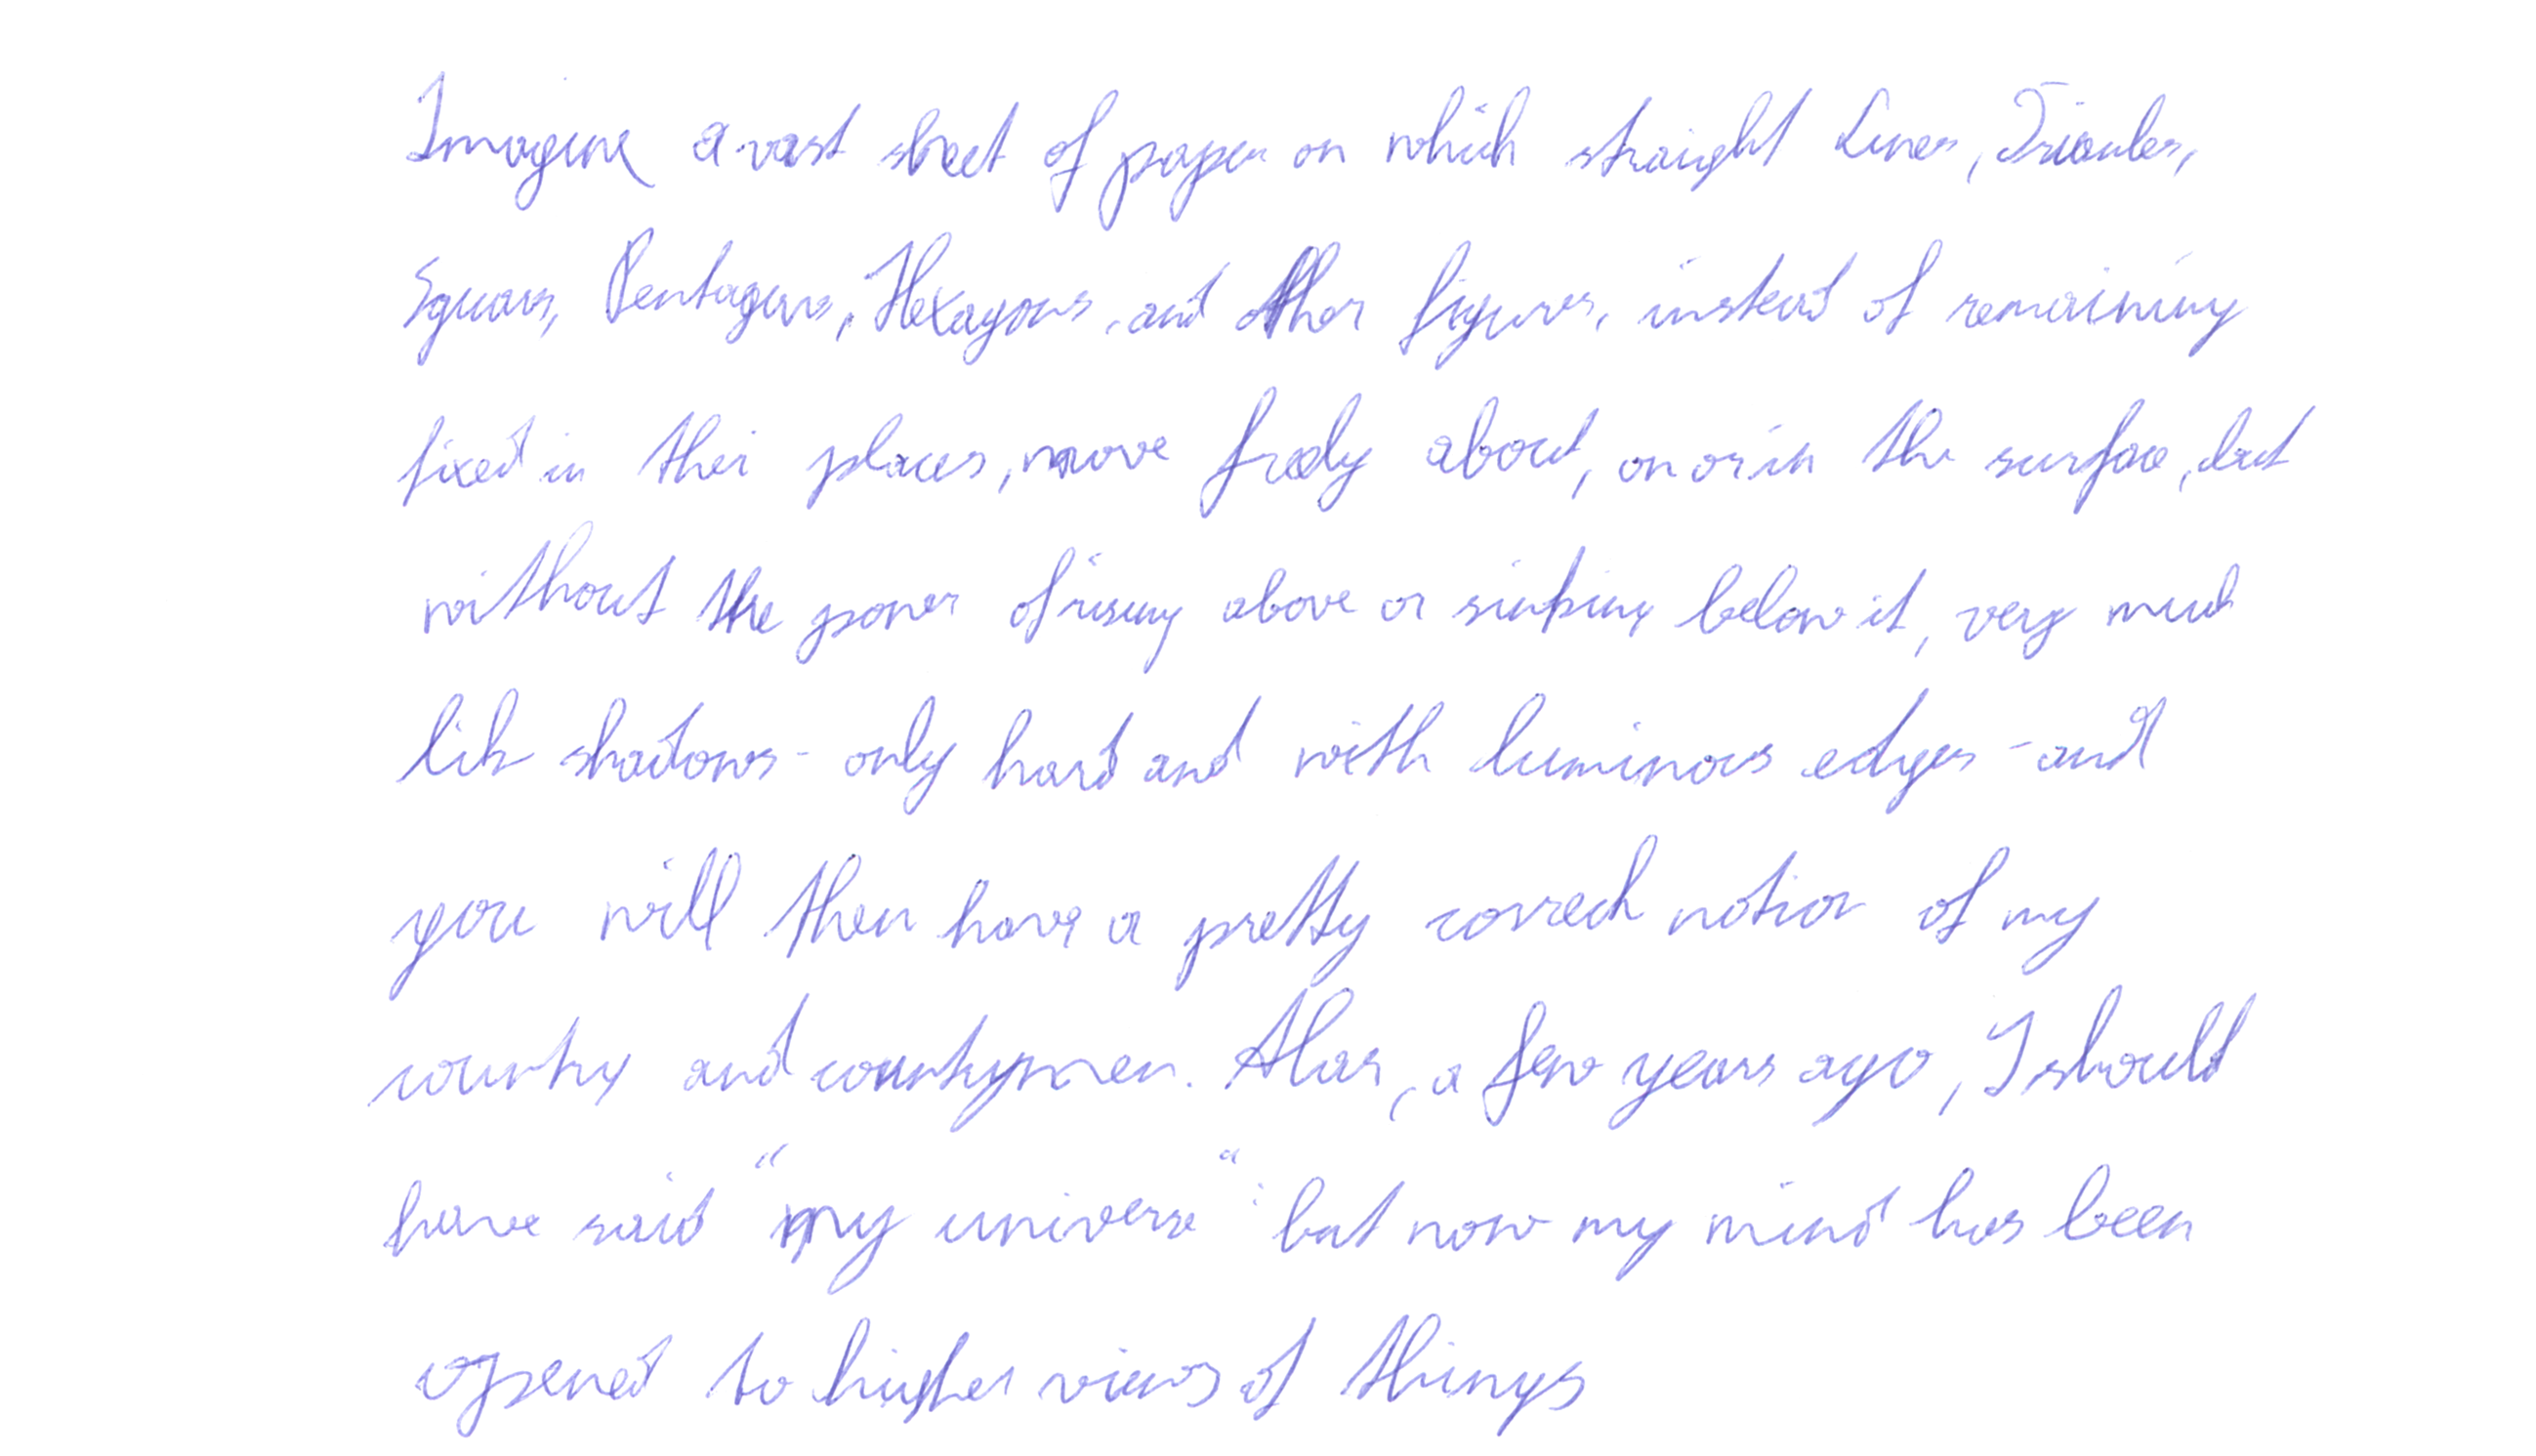 Imagine a vast sheet of paper on which straight Lines, Triangles,
Squares, Pentagons, Hexagons, and other figures, instead of remaining
fixed in their places, move freely about, on or in the surface, but
without the power of rising above or sinking below it, very much
like shadows - only hard and with luminous edges - and
you will then have a pretty correct notion of my
country and countrymen. Alas, a few years ago, I should
have said "my universe": but now my mind has been
opened to higher views of things